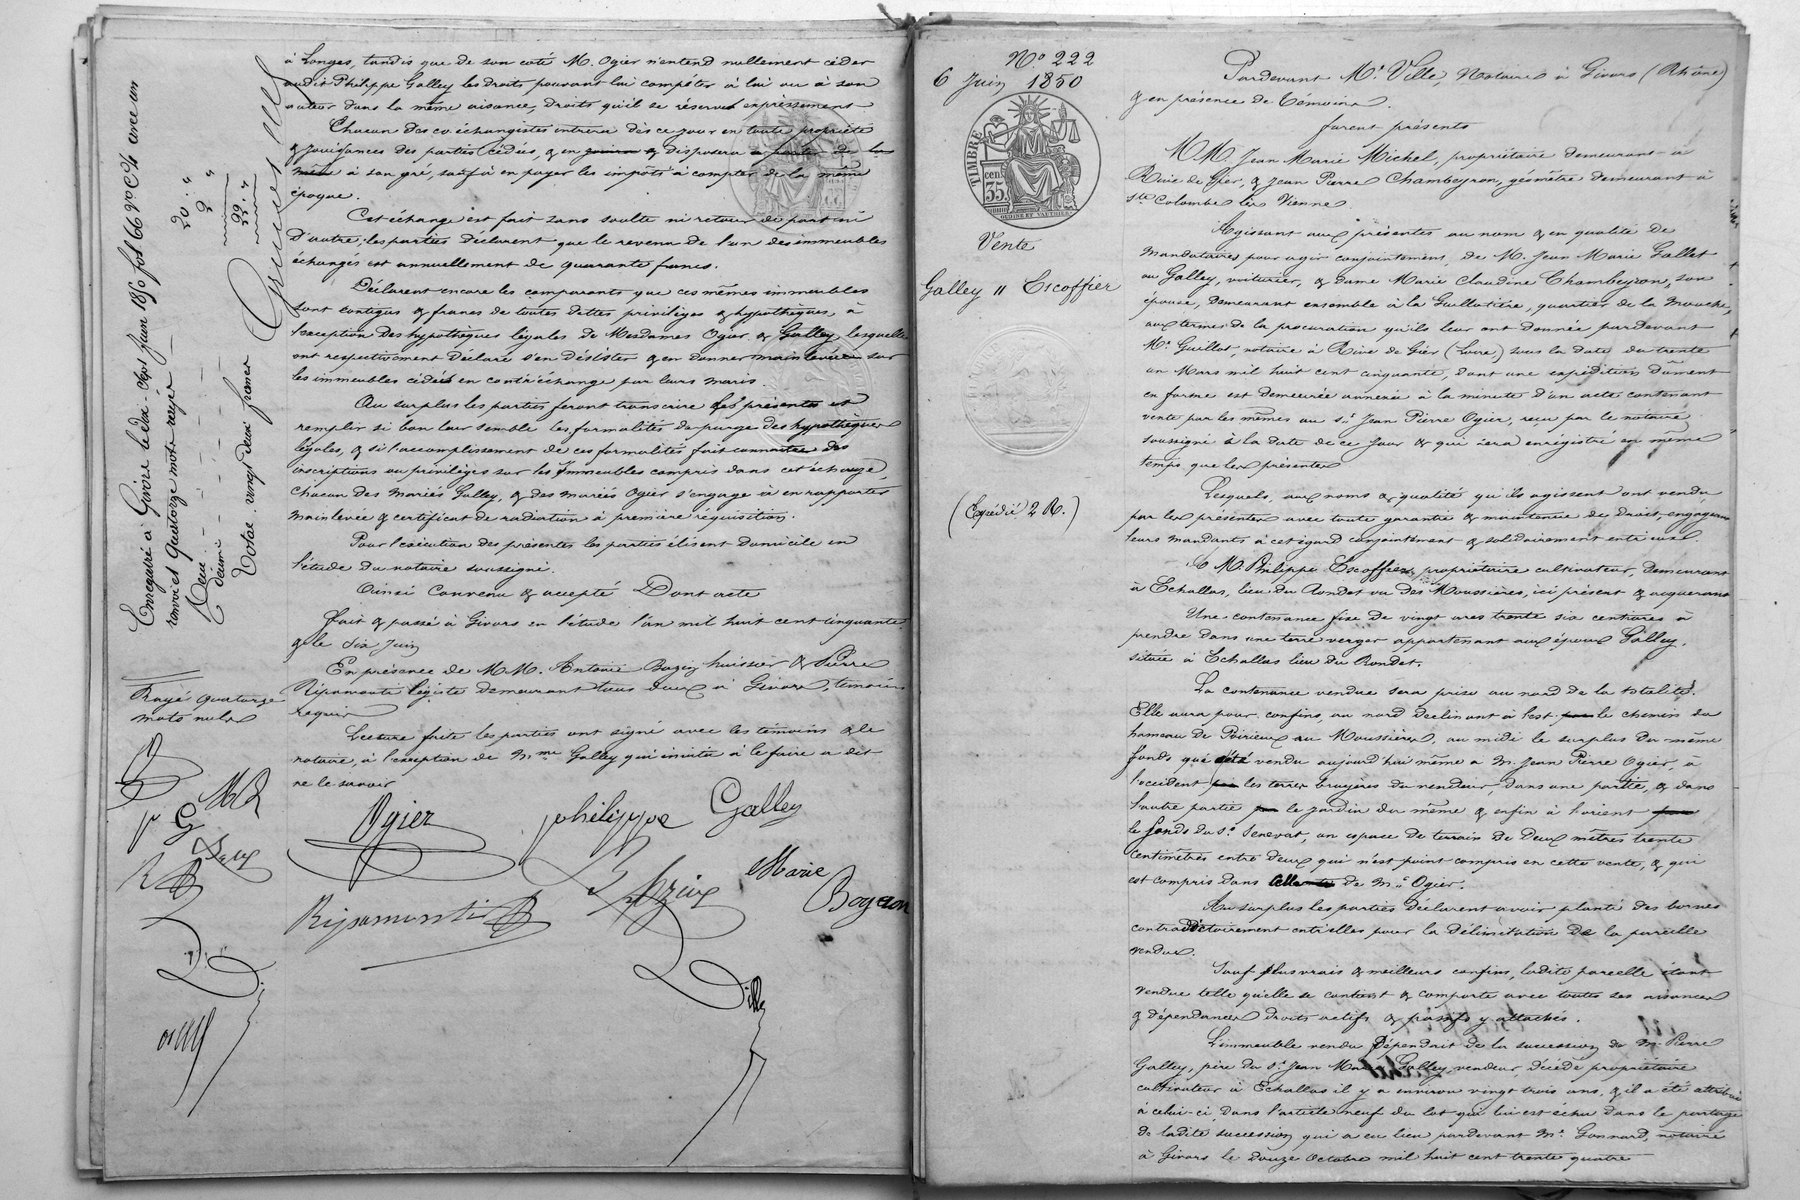 à Longes, tandis que de son coté M. Ogier n'entend nullement céder
audit Philippe Galley les droits pouvant lui compéter à lui ou à son
auteur dans la même aisance, droits qu'il se réserve expressément
Chacun des co-échangistes entrera dès ce jour en toute propriété
& jouissance des parties cédées, & en jouira & disposera à partir de la
même à son gré, sauf à en payer les impôts à compter de la même
époque.
Cet échange est fait sans soulte ni retour de part ni
d'autre; les parties déclarent que le revenu de l'un des immeubles
échangés est annuellement de quarante francs.
Déclarent encore les comparants que ces mêmes immeubles
sont contigus & francs de toutes dettes privilèges & hypothèques, à
l'exception des hypothèques légales de Mesdames Ogier & Galley, lesquelles
ont respectivement déclaré s'en désister & en donner mainlevée sur
les immeubles cédés en contr'échange par leurs maris.
Au surplus les parties feront transcrire les présentes et
remplir si bon leur semble les formalités de purge des hypothèques
légales, & si l'accomplissement de ces formalités fait connaitre des
inscriptions ou privilèges sur les immeubles compris dans cet échange,
chacun des mariés Galley, & des mariés Ogier s'engage à en rapporter
mainlevée & certificat de radiation à première réquisition.
Pour l'exécution des présentes les parties élisent domicile en
l'étude du notaire soussigné.
Ainsi convenu & accepté Dont acte
Fait & passé à Givors en l'étude l'an mil huit cent cinquante
& le six Juin
En présence de M.M. Antoine Bazin huissier & Pierre
Ripamonti légiste demeurant tous deux à Givors, témoins
requis
Lecture faite les parties ont signé avec les témoins & le
notaire, à l'exception de Mme Galley qui invitée à le faire a dit
ne le savoir
Ogier philippe Galley
Ripamonti Marie
Enregistré à Givors le dix-sept juin 1850 fol 66 Vo C 4 avec un
renvoi et quatorze mots rayés
20. "
2 "
22. "
Total vingt deux francs
Rayé quatorze
mots nuls
p G
No 222
6 Juin 1850
TIMBRE
35 cen
OUDINÉ ET VAUTHIER
Vente
Galley " Escoffier
(Expédié 2 R.)
Pardevant Me Ville, Notaire à Givors (Rhône)
& en présence de témoins.
furent présents
MM. Jean Marie Michel, propriétaire demeurant à
Rive de Gier, & Jean Pierre Chambeyron, géomètre demeurant à
Ste Colombe lès Vienne
Agissant aux présentes au nom & en qualité de
mandataires pour agir conjointement, de M. Jean Marie Gallet
ou Galley, voiturier, & dame Marie Claudine Chambeyron, son
épouse, demeurant ensemble à la Guillotière, quartier de la Mouche,
aux termes de la procuration qu'ils leur ont donnée pardevant
Me Guillot, notaire à Rive de Gier (Loire) sous la date du trente
un Mars mil huit cent cinquante, dont une expédition dûment
en forme est demeurée annexée à la minute d'un acte contenant
vente par les mêmes au sr Jean Pierre Ogier, reçu par le notaire
soussigné à la date de ce jour & qui sera enregistré en même
temps que les présentes
Lesquels, aux noms & qualité qu'ils agissent ont vendu
par les présentes avec toute garantie & maintenue de droit, engageant
leurs mandants à cet égard conjointement & solidairement entr'eux
à M. Philippe Escoffier, propriétaire cultivateur, demeurant
à Echallas, lieu du Rondet ou des Moussières, ici présent & acquérant
Une contenance fixe de vingt ares trente six centiares à
prendre dans une terre verger appartenant aux époux Galley,
située à Echallas lieu du Rondet.
La contenance vendue sera prise au nord de la totalité.
Elle aura pour confins, au nord déclinant à l'est par le chemin du
hameau de Poirieux au Moussières, au midi le surplus du même
fonds qui été vendu aujourd'hui même à M. Jean Pierre Ogier, à
l'occident par les terres bruyères du vendeur, dans une partie, & dans
l'autre partie par le jardin du même & enfin à l'orient par
le fonds du sr Senevat, un espace de terrain de deux mètres trente
centimètres entre deux qui n'est point compris en cette vente, & qui
est compris dans celle de Mr Ogier.
Au surplus les parties déclarent avoir planté des bornes
contradictoirement entr'elles pour la délimitation de la parcelle
vendue.
Sauf plus vrais & meilleurs confins, ladite parcelle étant
vendue telle qu'elle se contient & comporte avec toutes ses aisances
& dépendances droits actifs & passifs y attachés.
L'immeuble vendu dépendait de la succession de M. Pierre
Galley, père du sr Jean Marie Galley, vendeur, décédé propriétaire
cultivateur à Echallas il y a environ vingt trois ans, & il a été attribué
à celui-ci dans l'article neuf du lot qui lui est échu dans le partage
de ladite succession qui a eu lieu pardevant Me Gonnard, notaire
à Givors le douze Octobre mil huit cent trente quatre